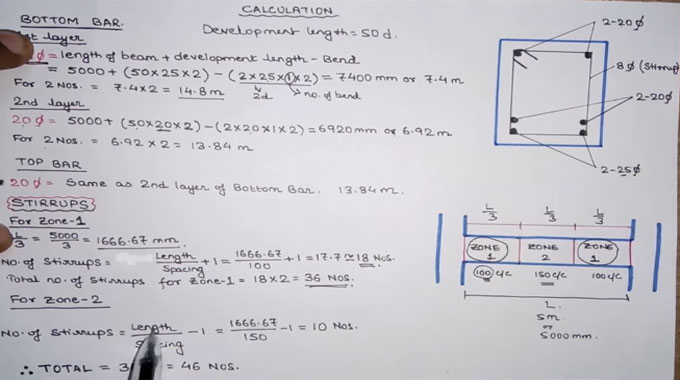 CALCULATION
BOTTOM BAR.
Development length = 50d.
1st layer
Ø = length of beam + development length - Bend
= 5000 + (50×25×2) - (2×25×1×2) = 7400 mm or 7.4 m
2d
no. of bend
For 2 Nos. = 7.4×2 = 14.8 m
2nd layer
20 Ø = 5000 + (50×20×2) - (2×20×1×2) = 6920 mm or 6.92 m
For 2 Nos. = 6.92 × 2 = 13.84 m
TOP BAR
20 Ø = Same as 2nd layer of Bottom Bar. 13.84 m.
STIRRUPS
For Zone-1
L/3 = 5000/3 = 1666.67 mm.
No. of Stirrups = Length/Spacing + 1 = 1666.67/100 + 1 = 17.7 ≈ 18 Nos.
Total no. of Stirrups for Zone-1 = 18×2 = 36 Nos.
For Zone-2
No. of Stirrups = Length/Spacing - 1 = 1666.67/150 - 1 = 10 Nos.
∴ TOTAL = 3 = 46 Nos.
2-20Ø
8Ø (Stirrup)
2-20Ø
2-25Ø
L/3 L/3 L/3
ZONE 1 ZONE 2 ZONE 1
100 c/c 150 c/c 100 c/c
L.
5m
or
5000 mm.